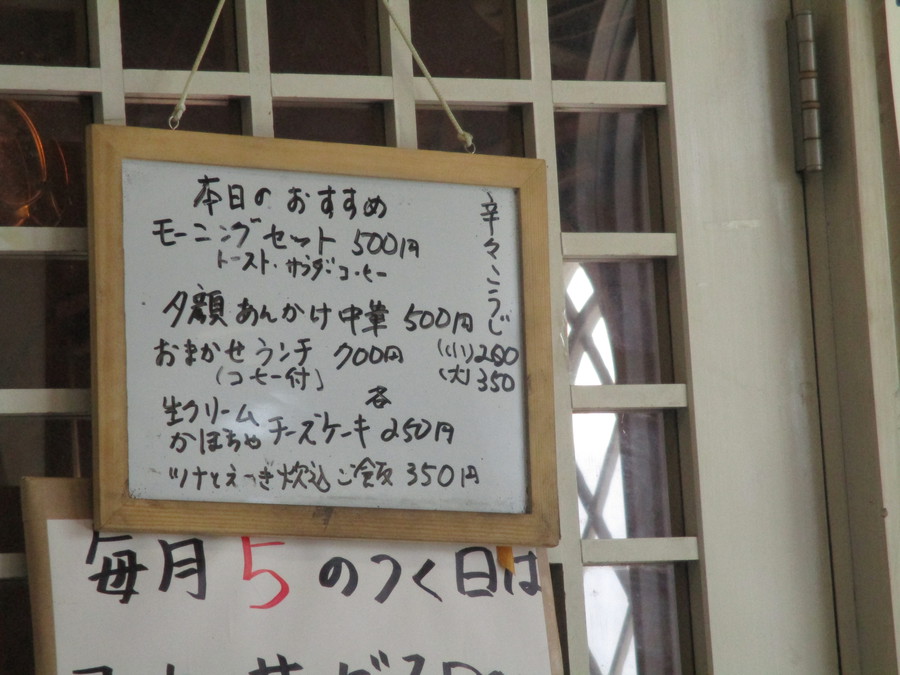 本日のおすすめ
モーニングセット 500円
トースト・サラダ・コーヒー
夕顔あんかけ中華 500円
おまかせランチ 700円
(コーヒー付)
生クリーム
かぼちゃ チーズケーキ 各250円
ツナとえのき炊込ご飯 350円
辛々こうじ
(小)200
(大)350
毎月5のつく日は